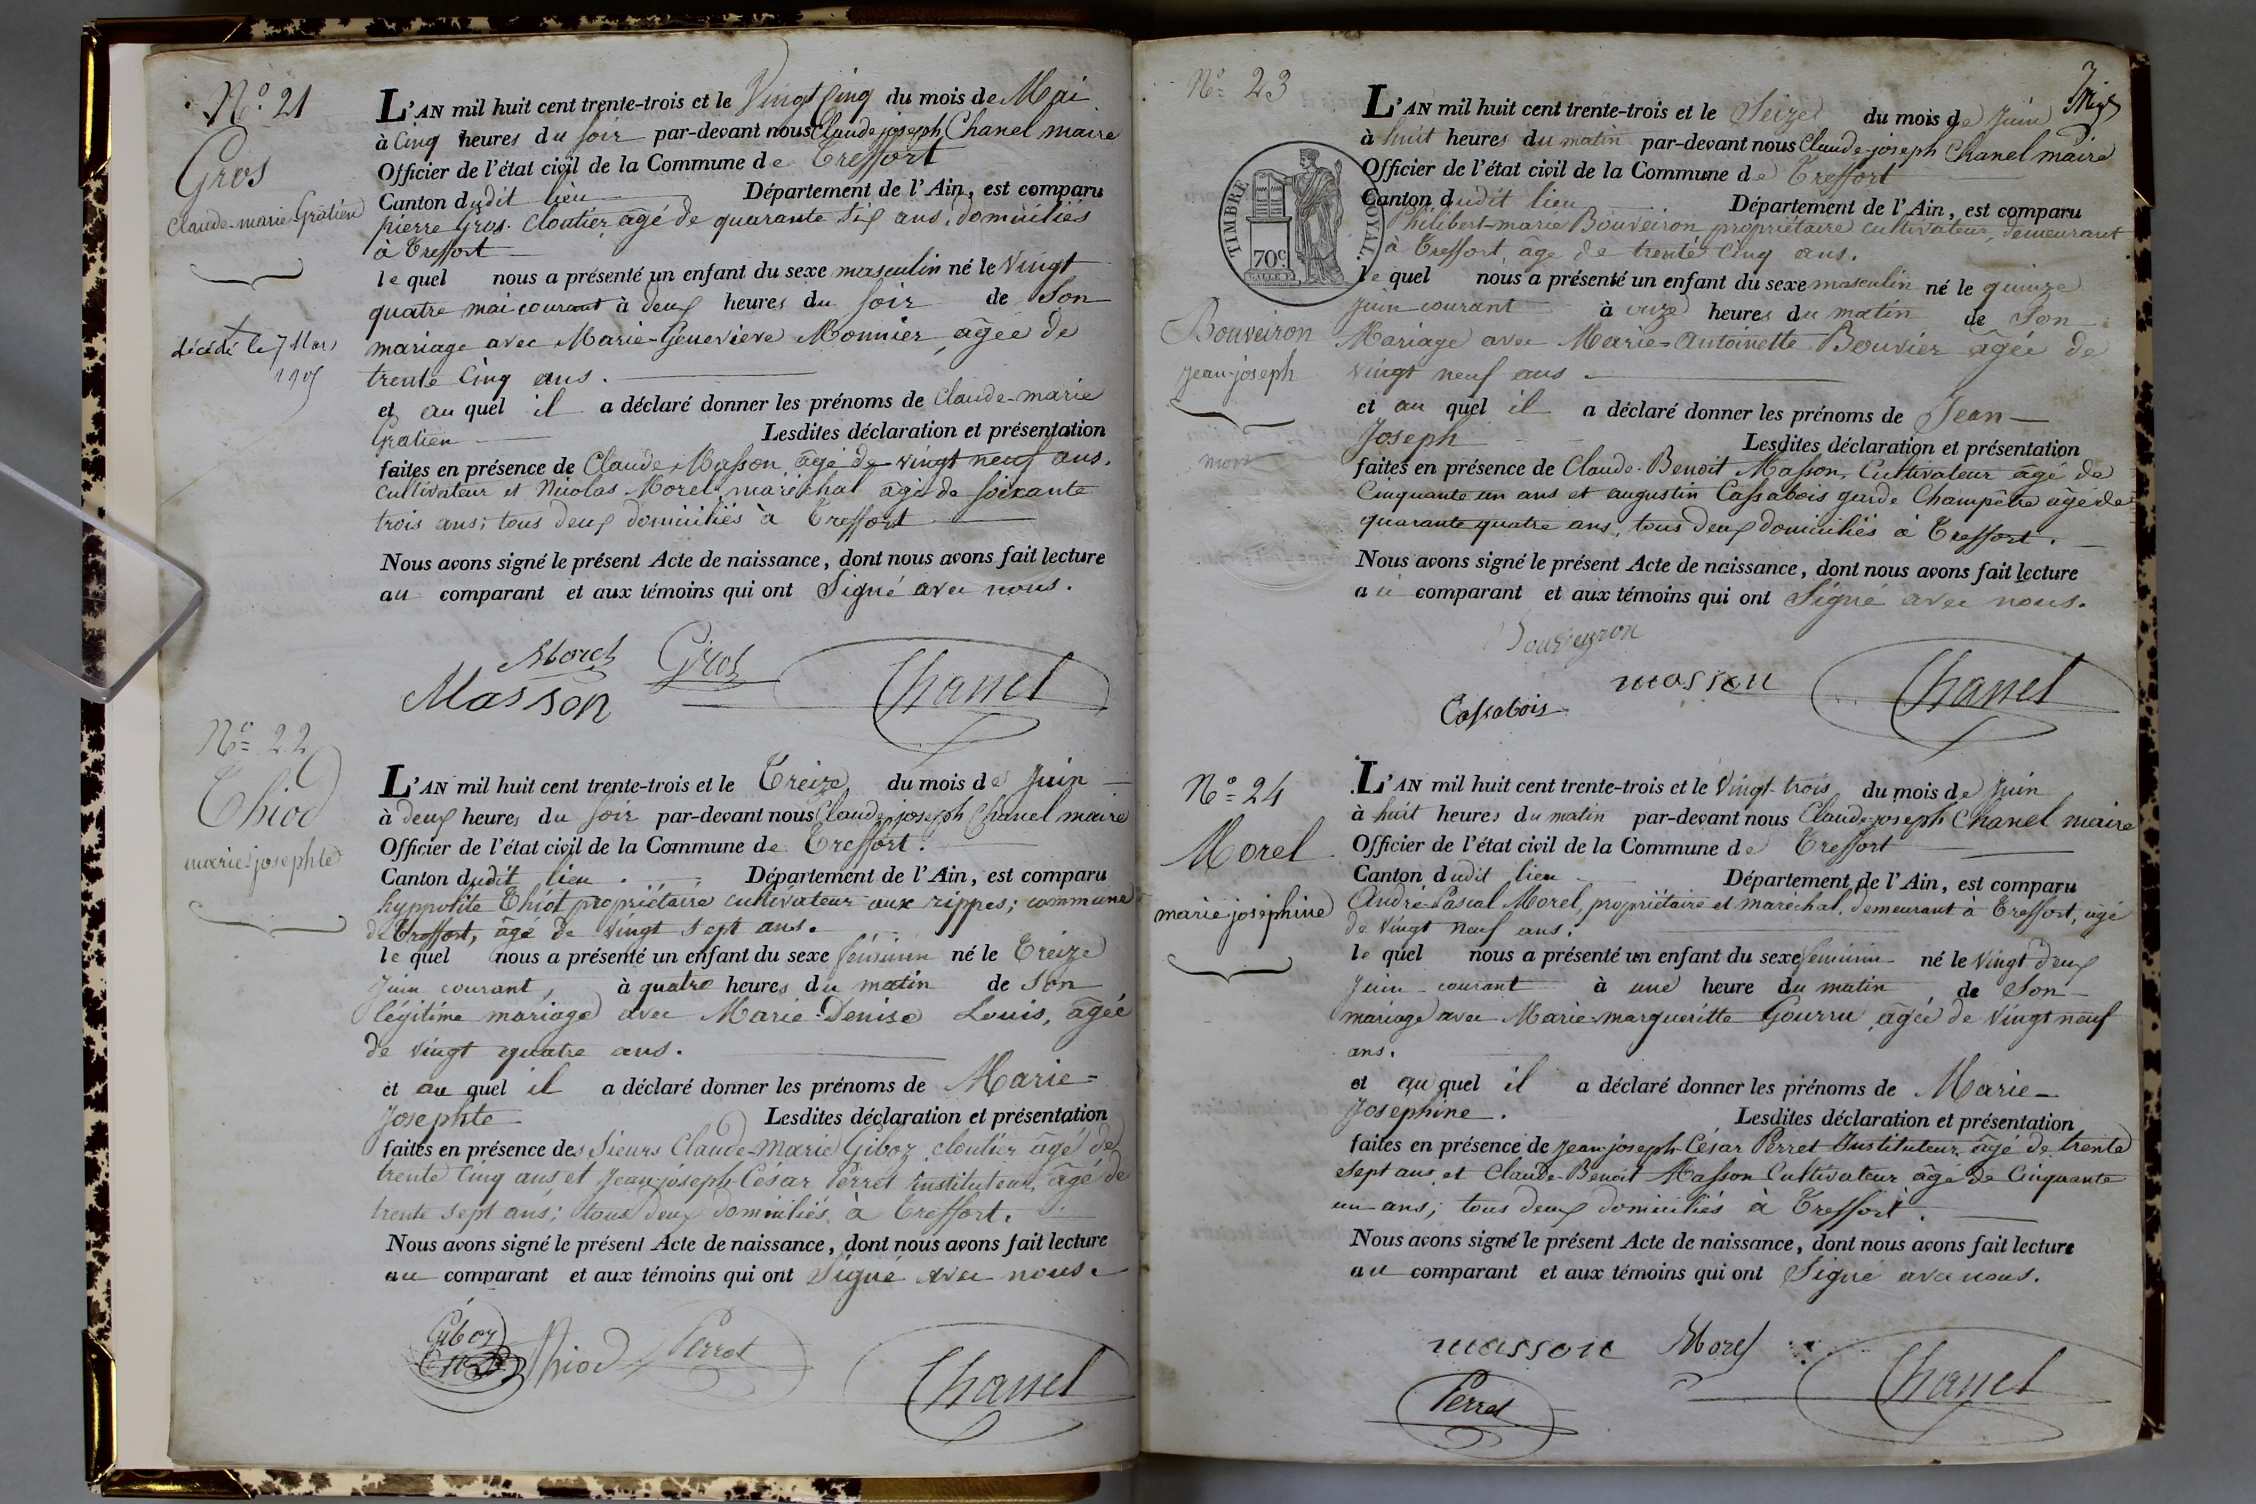 N° 21
Gros
Claude-marie Gratien
décédé le 7 Mars
L'AN mil huit cent trente-trois et le Vingt Cinq du mois de Mai
à Cinq heures du soir par-devant nous Claude joseph Chanel maire
Officier de l'état civil de la Commune de Treffort
Canton dudit lieu Département de l'Ain, est comparu
pierre Gros Cloutier âgé de quarante six ans, domiciliés
à Treffort
le quel nous a présenté un enfant du sexe masculin né le Vingt
quatre mai courant à deux heures du soir de Son
mariage avec Marie-Geneviève Monnier, âgée de
trente Cinq ans.
et au quel il a déclaré donner les prénoms de Claude-marie
Gratien Lesdites déclaration et présentation
faites en présence de Claude Masson, âgé de vingt neuf ans,
Cultivateur et Nicolas Morel, maréchal âgé de soixante
trois ans; tous deux domiciliés à Treffort
Nous avons signé le présent Acte de naissance, dont nous avons fait lecture
au comparant et aux témoins qui ont Signé avec nous.
Morel Gros
Masson Chanel
N° 22
Thiod
marie-josephte
L'AN mil huit cent trente-trois et le Treize du mois de Juin
à deux heures du soir par-devant nous Claude joseph Chanel maire
Officier de l'état civil de la Commune de Treffort.
Canton dudit lieu Département de l'Ain, est comparu
hyppolite Thiot propriétaire cultivateur aux rippes; commune
de Treffort, âgé de vingt sept ans.
le quel nous a présenté un enfant du sexe féminin né le Treize
Juin courant, à quatre heures du matin de Son
légitime mariage avec Marie-Denise Louis, âgée
de vingt quatre ans.
et au quel il a déclaré donner les prénoms de Marie-
Josephte Lesdites déclaration et présentation
faites en présence des Sieurs Claude-Marie Giboz cloutier âgé de
trente Cinq ans et Jean-joseph-César Perret instituteur, âgé de
trente sept ans; tous deux domiciliés à Treffort.
Nous avons signé le présent Acte de naissance, dont nous avons fait lecture
au comparant et aux témoins qui ont Signé avec nous.
Giboz Thiod Perret
Chanel
N° 23
Bouveiron
jean-joseph
mort
L'AN mil huit cent trente-trois et le Seize du mois de Juin
à huit heures du matin par-devant nous Claude-joseph Chanel maire
Officier de l'état civil de la Commune de Treffort
Canton dudit lieu Département de l'Ain, est comparu
Philibert-marie Bouveiron propriétaire cultivateur, demeurant
à Treffort, âgé de trente cinq ans.
le quel nous a présenté un enfant du sexe masculin né le quinze
Juin courant à onze heures du matin de Son
Mariage avec Marie-Antoinette Bouvier âgée de
vingt neuf ans.
et au quel il a déclaré donner les prénoms de Jean-
Joseph Lesdites déclaration et présentation
faites en présence de Claude-Benoit Masson, Cultivateur âgé de
Cinquante un ans et augustin Cassabois garde Champêtre âgé de
quarante quatre ans, tous deux domiciliés à Treffort.
Nous avons signé le présent Acte de naissance, dont nous avons fait lecture
au comparant et aux témoins qui ont Signé avec nous.
Bouveyron
masson Chanel
Cassabois
TIMBRE ROYAL.
70c
N° 24
Morel
marie joséphine
L'AN mil huit cent trente-trois et le Vingt-trois du mois de Juin
à huit heures du matin par-devant nous Claude-joseph Chanel maire
Officier de l'état civil de la Commune de Treffort
Canton dudit lieu Département de l'Ain, est comparu
André-Pascal Morel, propriétaire et maréchal, demeurant à Treffort, âgé
de vingt neuf ans.
le quel nous a présenté un enfant du sexe féminin né le Vingt deux
Juin courant à une heure du matin de Son
mariage avec Marie-margueritte Gourru, âgée de vingt neuf
ans.
et au quel il a déclaré donner les prénoms de Marie-
Josephine. Lesdites déclaration et présentation
faites en présence de Jean-joseph-César Perret Instituteur âgé de trente
sept ans et Claude-Benoit Masson Cultivateur âgé de Cinquante
un ans; tous deux domiciliés à Treffort.
Nous avons signé le présent Acte de naissance, dont nous avons fait lecture
au comparant et aux témoins qui ont Signé avec nous.
masson Morel Chanel
Perret